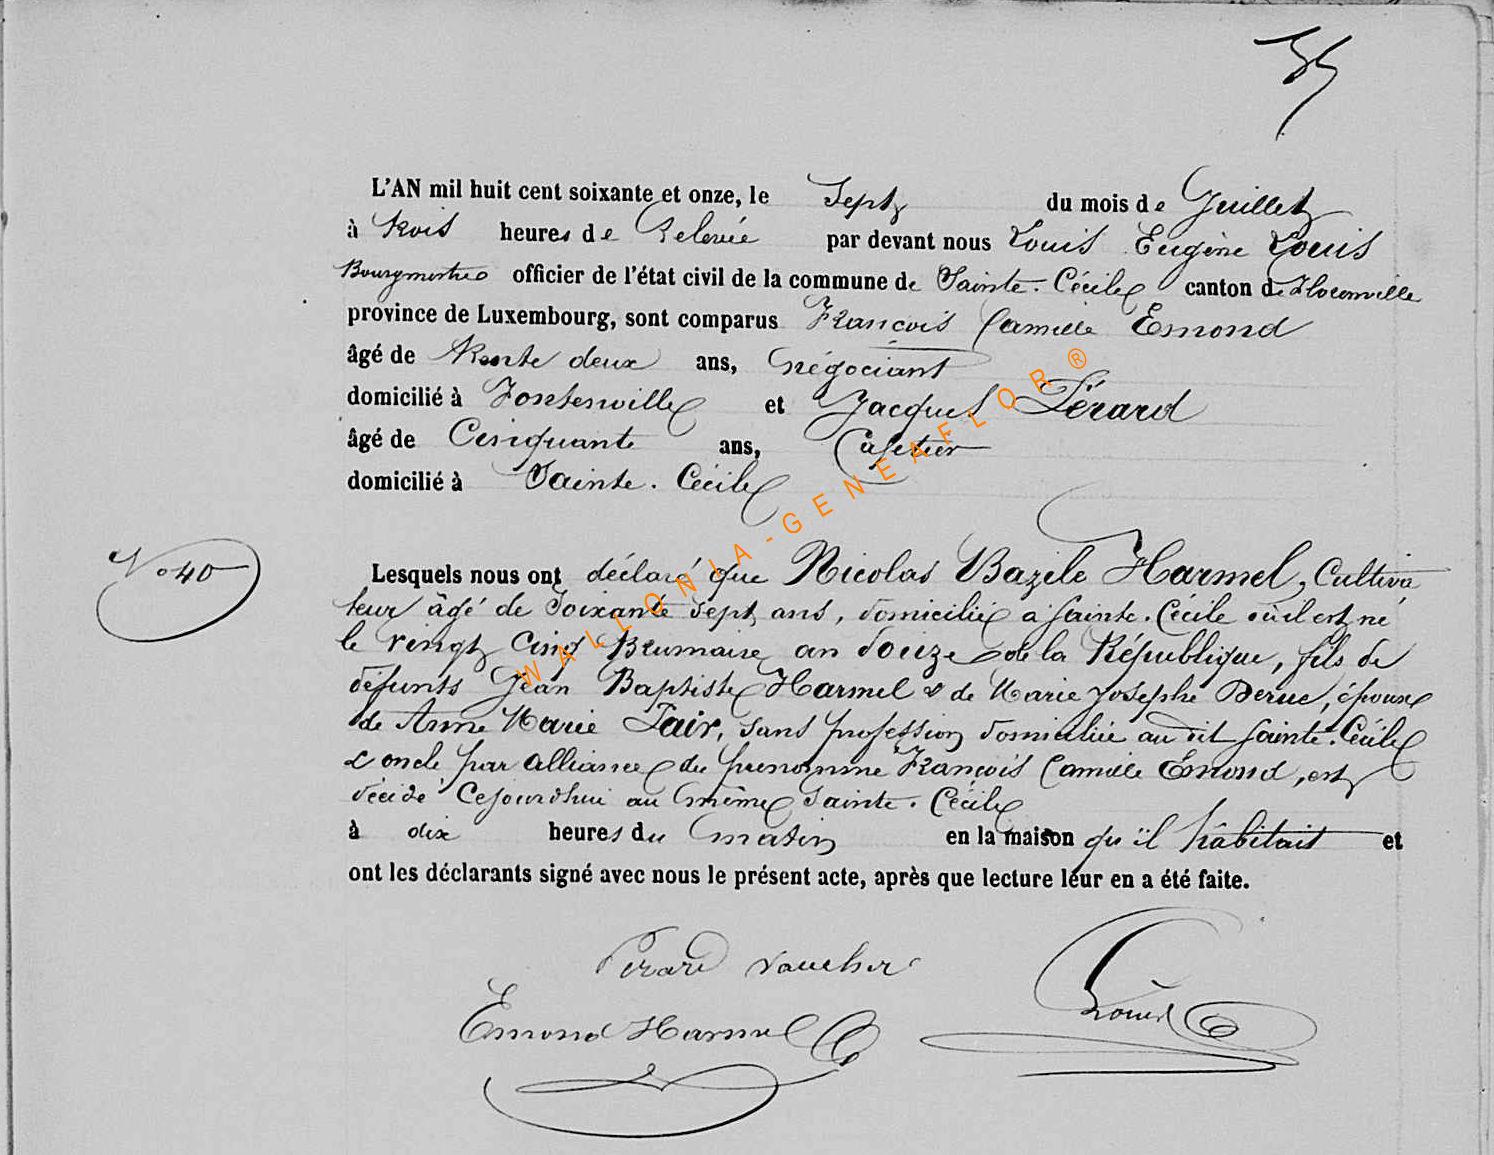 35
L'AN mil huit cent soixante et onze, le Sept du mois de Juillet
à trois heures de Relevée par devant nous Louis Eugène Louis
Bourgmestre officier de l'état civil de la commune de Sainte-Cécile canton de Florenville
province de Luxembourg, sont comparus François Camille Emond
âgé de trente deux ans, négociant
domicilié à Fontenoille et Jacques Pérard
âgé de Cinquante ans, Cafetier
domicilié à Sainte-Cécile
No 40
Lesquels nous ont déclaré que Nicolas Bazile Harmel, Cultiva
teur âgé de Soixante sept ans, domicilié a Sainte-Cécile où il est né
le vingt cinq Brumaire an douze de la République, fils de
défunts Jean Baptiste Harmel & de Marie Josephe Deruc, époux
de Anne Marie Pair, sans profession domiciliée au dit Sainte-Cécile
& oncle par alliance du prénommé François Camille Emond, est
décédé Cejourdhui au même Sainte-Cécile
à dix heures du matin en la maison qu'il habitait et
ont les déclarants signé avec nous le présent acte, après que lecture leur en a été faite.
Pérard Vaucher
Emond Harmel
Louis
WALLONIA-GENEAFLOR®